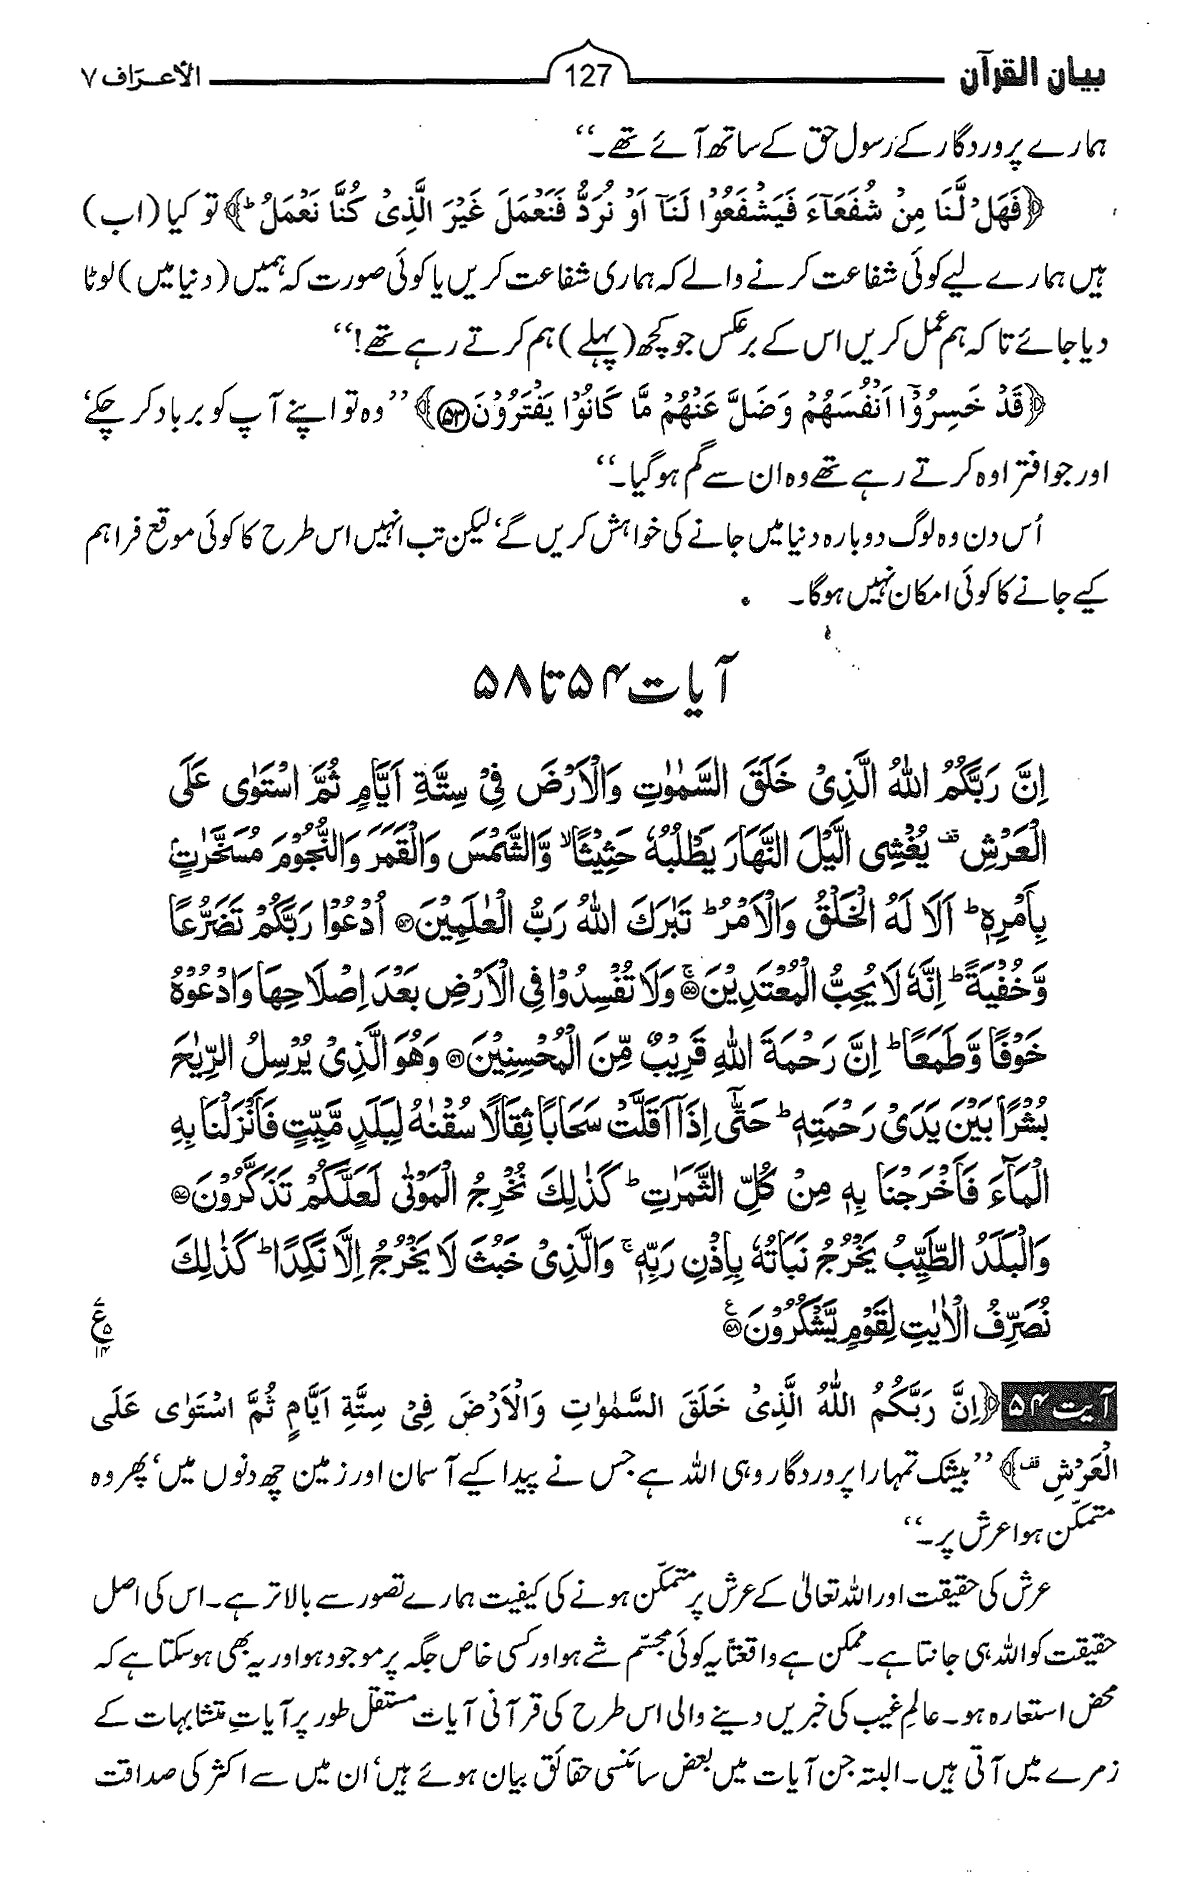 بیان القرآن 127 الاعراف ۷
ہمارے پروردگار کے رسول حق کے ساتھ آئے تھے۔‘‘
﴿فَهَلْ لَّنَا مِنْ شُفَعَآءَ فَيَشْفَعُوْا لَنَآ اَوْ نُرَدُّ فَنَعْمَلَ غَيْرَ الَّذِيْ كُنَّا نَعْمَلُ ؕ﴾ تو کیا (اب)
ہیں ہمارے لیے کوئی شفاعت کرنے والے کہ ہماری شفاعت کریں یا کوئی صورت کہ ہمیں (دنیا میں) لوٹا
دیا جائے تاکہ ہم عمل کریں اس کے برعکس جو کچھ (پہلے) ہم کرتے رہے تھے!‘‘
﴿قَدْ خَسِرُوْٓا اَنْفُسَهُمْ وَضَلَّ عَنْهُمْ مَّا كَانُوْا يَفْتَرُوْنَ ﴿۵۳﴾﴾ ’’وہ تو اپنے آپ کو برباد کر چکے‘
اور جو افترا وہ کرتے رہے تھے وہ ان سے گم ہو گیا۔‘‘
اُس دن وہ لوگ دوبارہ دنیا میں جانے کی خواہش کریں گے‘ لیکن تب انہیں اس طرح کا کوئی موقع فراہم
کیے جانے کا کوئی امکان نہیں ہوگا۔
آیات ۵۴ تا ۵۸
اِنَّ رَبَّكُمُ اللّٰهُ الَّذِيْ خَلَقَ السَّمٰوٰتِ وَالْاَرْضَ فِيْ سِتَّةِ اَيَّامٍ ثُمَّ اسْتَوٰى عَلَى
الْعَرْشِ ۫ يُغْشِى الَّيْلَ النَّهَارَ يَطْلُبُهٗ حَثِيْثًا ۙ وَّالشَّمْسَ وَالْقَمَرَ وَالنُّجُوْمَ مُسَخَّرٰتٍۭ
بِاَمْرِهٖ ؕ اَلَا لَهُ الْخَلْقُ وَالْاَمْرُ ؕ تَبٰرَكَ اللّٰهُ رَبُّ الْعٰلَمِيْنَ ﴿۵۴﴾ اُدْعُوْا رَبَّكُمْ تَضَرُّعًا
وَّخُفْيَةً ؕ اِنَّهٗ لَا يُحِبُّ الْمُعْتَدِيْنَ ﴿۵۵﴾ۚ وَلَا تُفْسِدُوْا فِي الْاَرْضِ بَعْدَ اِصْلَاحِهَا وَادْعُوْهُ
خَوْفًا وَّطَمَعًا ؕ اِنَّ رَحْمَةَ اللّٰهِ قَرِيْبٌ مِّنَ الْمُحْسِنِيْنَ ﴿۵۶﴾ وَهُوَ الَّذِيْ يُرْسِلُ الرِّيٰحَ
بُشْرًاۢ بَيْنَ يَدَيْ رَحْمَتِهٖ ؕ حَتّٰىٓ اِذَآ اَقَلَّتْ سَحَابًا ثِقَالًا سُقْنٰهُ لِبَلَدٍ مَّيِّتٍ فَاَنْزَلْنَا بِهِ
الْمَآءَ فَاَخْرَجْنَا بِهٖ مِنْ كُلِّ الثَّمَرٰتِ ؕ كَذٰلِكَ نُخْرِجُ الْمَوْتٰى لَعَلَّكُمْ تَذَكَّرُوْنَ ﴿۵۷﴾
وَالْبَلَدُ الطَّيِّبُ يَخْرُجُ نَبَاتُهٗ بِاِذْنِ رَبِّهٖ ۚ وَالَّذِيْ خَبُثَ لَا يَخْرُجُ اِلَّا نَكِدًا ؕ كَذٰلِكَ
نُصَرِّفُ الْاٰيٰتِ لِقَوْمٍ يَّشْكُرُوْنَ ﴿۵۸﴾ ع
۷ ع ۵ ۱۴
آیت ۵۴ ﴿اِنَّ رَبَّكُمُ اللّٰهُ الَّذِيْ خَلَقَ السَّمٰوٰتِ وَالْاَرْضَ فِيْ سِتَّةِ اَيَّامٍ ثُمَّ اسْتَوٰى عَلَى
الْعَرْشِ ۫﴾ ’’بیشک تمہارا پروردگار وہی اللہ ہے جس نے پیدا کیے آسمان اور زمین چھ دنوں میں‘ پھر وہ
متمکّن ہوا عرش پر۔‘‘
عرش کی حقیقت اور اللہ تعالیٰ کے عرش پر متمکّن ہونے کی کیفیت ہمارے تصور سے بالاتر ہے۔ اس کی اصل
حقیقت کو اللہ ہی جانتا ہے۔ ممکن ہے واقعتاً یہ کوئی مجسّم شے ہو اور کسی خاص جگہ پر موجود ہو اور یہ بھی ہو سکتا ہے کہ
محض استعارہ ہو۔ عالمِ غیب کی خبریں دینے والی اس طرح کی قرآنی آیات مستقل طور پر آیاتِ متشابہات کے
زمرے میں آتی ہیں۔ البتہ جن آیات میں بعض سائنسی حقائق بیان ہوئے ہیں‘ ان میں سے اکثر کی صداقت